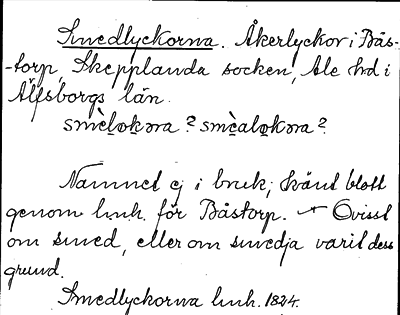 Smedlyckorna. Åkerlyckor i Bås-
-torp, Skepplanda socken, Ale hd i
Älfsborgs län.
smèlo̱kɔra? smèalo̱kɔra?
Namnet ej i bruk; känt blott
genom lmh. för Båstorp. – Ovisst
om smed, eller om smedja varit dess
grund.
Smedlyckorna lmh. 1824.